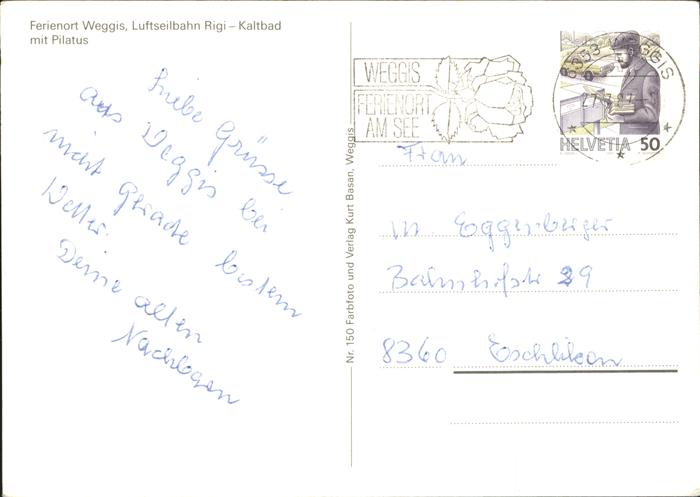 Ferienort Weggis, Luftseilbahn Rigi – Kaltbad
mit Pilatus
Liebe Grüsse
aus Weggis bei
nicht gerade bestem
Wetter.
Deine alten
Nachbarn
Nr. 150 Farbfoto und Verlag Kurt Basan, Weggis
WEGGIS
FERIENORT
AM SEE
6353 WEGGIS
HELVETIA 50
Frau
M Eggenberger
Bahnhofstr 29
8360 Eschlikon